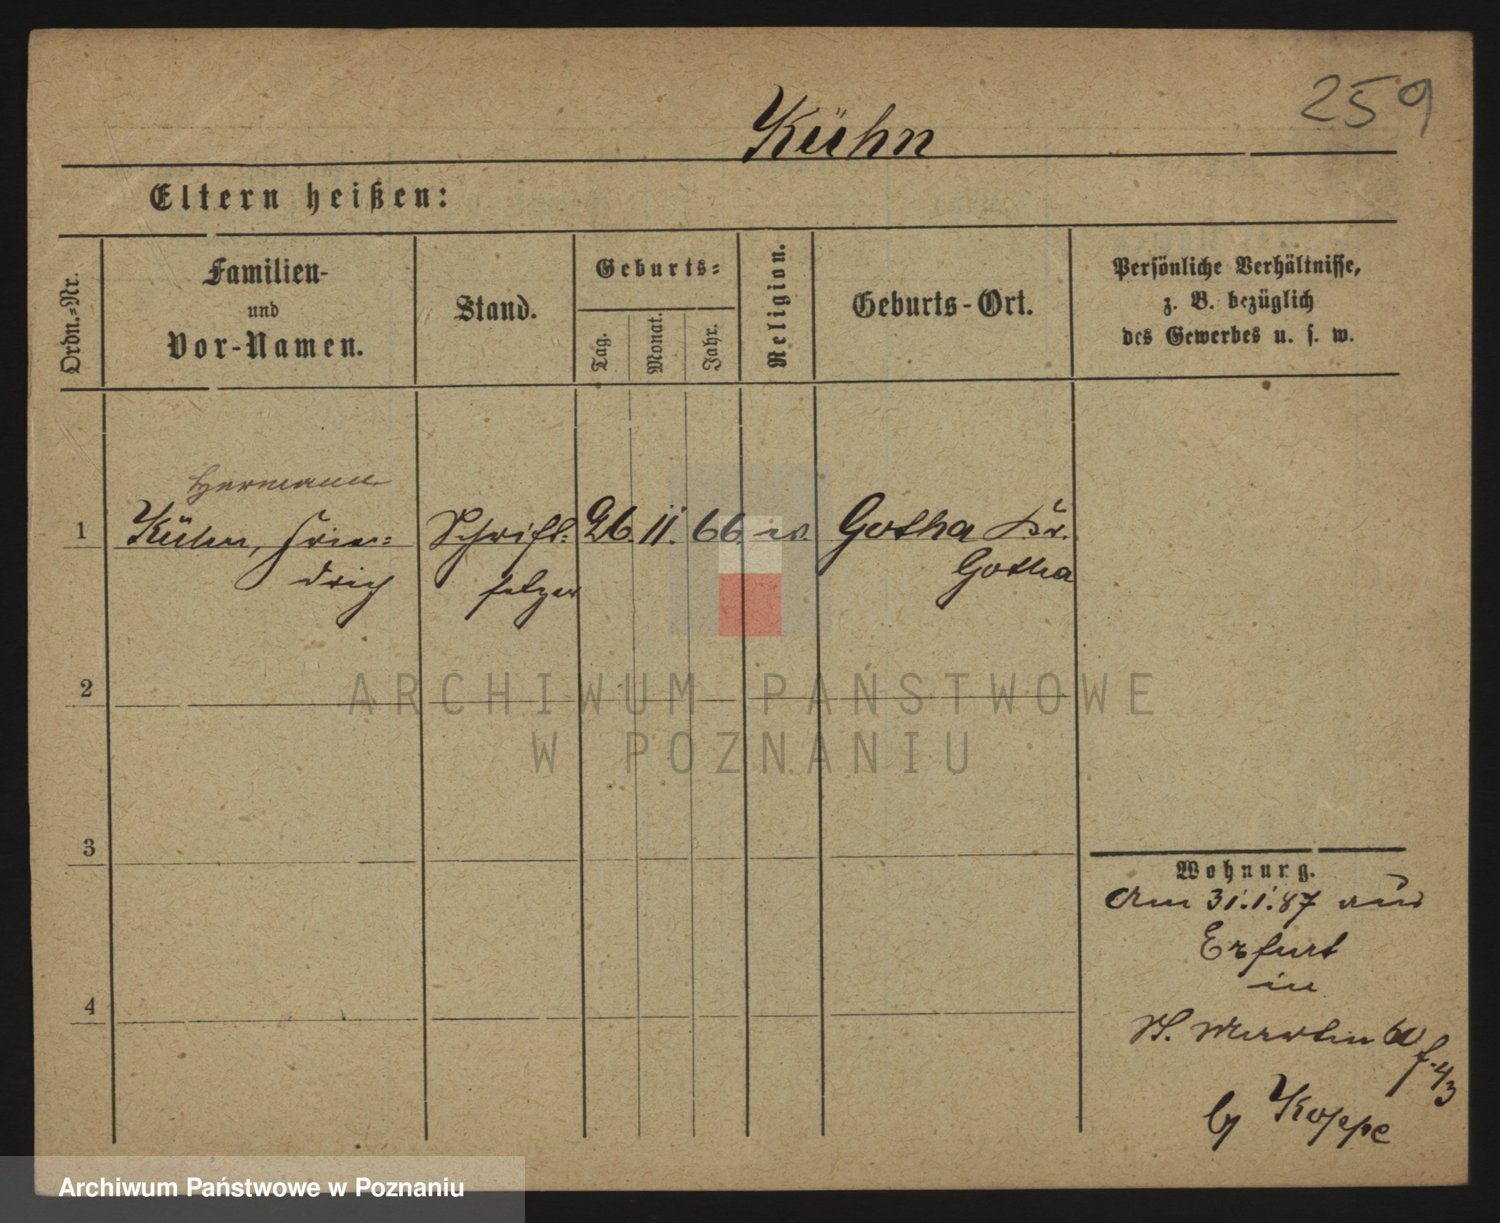 259
Kühn
Eltern heißen:
Ordn.-Nr.
Familien-
und
Vor-Namen.
Stand.
Geburts-
Tag.
Monat.
Jahr.
Religion.
Geburts-Ort.
Persönliche Verhältnisse,
z. B. bezüglich
des Gewerbes u. s. w.
Hermann
1 Kühn, Frie= Schrift= 26. 11. 66. ev. Gotha Kr.
drich setzer Gotha
2
ARCHIWUM PAŃSTWOWE
W POZNANIU
3
Wohnung.
Am 31.1.87 aus
Erfurt
in
4
St. Martin 60
f. 4/3
by Koppe
Archiwum Państwowe w Poznaniu